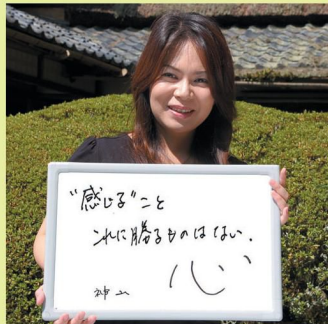 “感じる”こと
これに勝るものはない.
心
神山